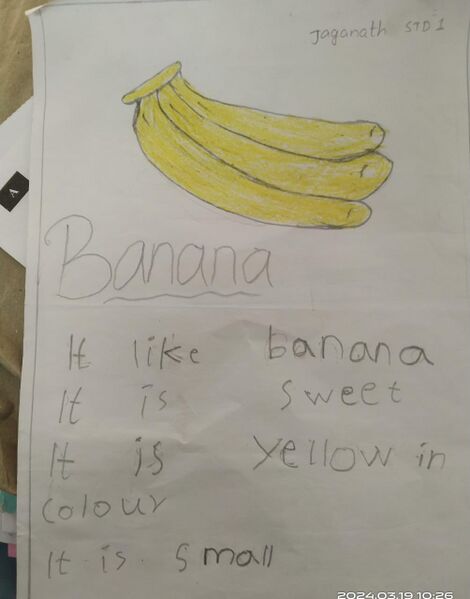 Jaganath STD 1
A
Banana
It like banana
It is sweet
It is yellow in
colour
It is small
2024.03.19 10:26